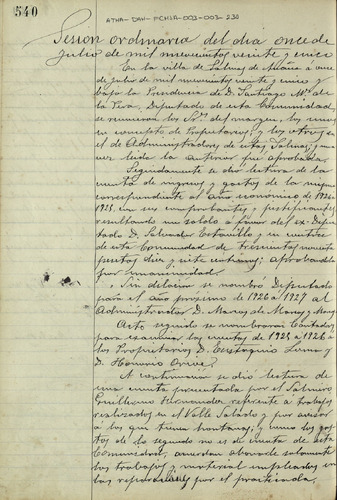 540
ATHA-DAH-FCHSA-003-003-230
Sesion ordinaria del dia once de
Julio de mil novecientos veinte y cinco
En la villa de Salinas de Añana á once
de Julio de mil novecientos veinte y cinco y
bajo la Presidencia de D. Santiago Mª de
la Pera, Diputado de esta Comunidad,
se reunieron los Sres del margen, los unos
en concepto de Propietarios y los otros en
el de Administradores de estas Salinas; y una
vez leida la anterior fué aprobada.
Seguidamente se dió lectura de la
cuenta de ingresos y gastos de la misma
correspondiente al año economico de 1924 a
1925, con sus comprobantes y justificantes,
resultando un saldo a favor del ex-Dipu-
tado D. Salvador Estavillo y en contra
de esta Comunidad de trescientas noventa
pesetas diez y siete centimos; aprobandola
por unanimidad.
Sin dilacion se nombró Diputado
para el año proximo de 1926 a 1927 al
Administrador D. Marcos de
Acto seguido se nombraron Contadores
para examinar las cuentas de 1925 a 1926 á
los Propietarios D. Eustaquio
D. Honorio
A continuacion se dió lectura de
una cuenta presentada por el Salinero
Guillermo Hernandez referente á trabajos
realizados en el Valle Salado y por
a los que tienen huertas; y como los gas-
tos de lo segundo no es de cuenta de esta
Comunidad, acuerdan abonarle solamente
los trabajos y material empleados en
las reparaciones por el practicadas.